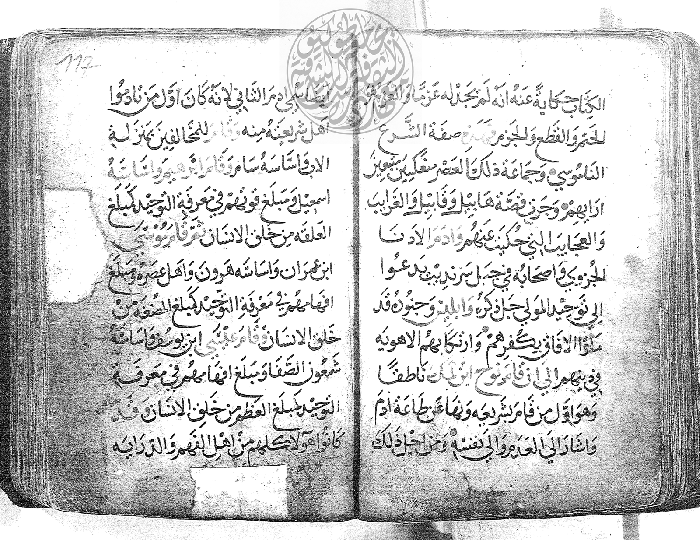 الكتاب حكاية عنه انه لم نجد له عزما والعزم
الحتم والقطع والجزم صفة الشرع
الناموسي وجماعة ذلك العصر منعكسين بتغيير
ارايهم وجرى قصة هابيل وقابيل والغرايب
والعجايب التي حكيت عنهم وادم الادنا
الجزوي واصحابه في جبل سرنديب يدعوا
الى توحيد المولى جل ذكره وابليس وجنوده قد
ملوا الافاق بكفرهم وارتكابهم الاهويه
في دينهم الى ان قام نوح ابن لمك ناطقا
وهو اول من قام بشريعه ونها عن طاعة ادم
واشار الى العدم والى نفسه ومن اجل ذلك
ادم الثاني لانه كان اول من نادموا
اهل شريعته منه وقام للمخالفين بمنزلة
الاب واساسه سام وقام ابرهيم واساسه
اسمعيل ومبلغ قوتهم في معرفة التوحيد كمبلغ
العلقه من خلق الانسان ثم قام موسى
ابن عمران واساسه هرون واهل عصره ومبلغ
افهامهم في معرفة التوحيد كمبلغ المضغة من
خلق الانسان وقام عيسى ابن يوسف واساسه
شمعون الصفا ومبلغ افهامهم في معرفة
التوحيد كمبلغ العظم من خلق الانسان وقد
كانوا هولا كلهم من اهل الفهم والدرايه
117